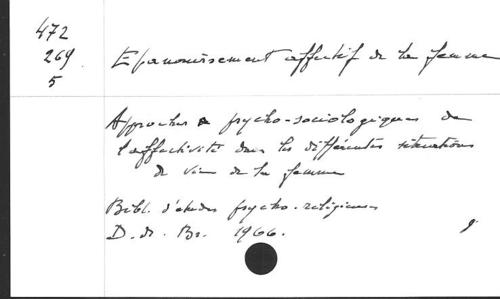 472
269
5
Epanouissement affectif de la femme
Approches psycho-sociologiques de
l'affectivité dans les différentes situations
de vie de la femme
Bibl. d'études psycho-religieuses
D. de Br. 1966.